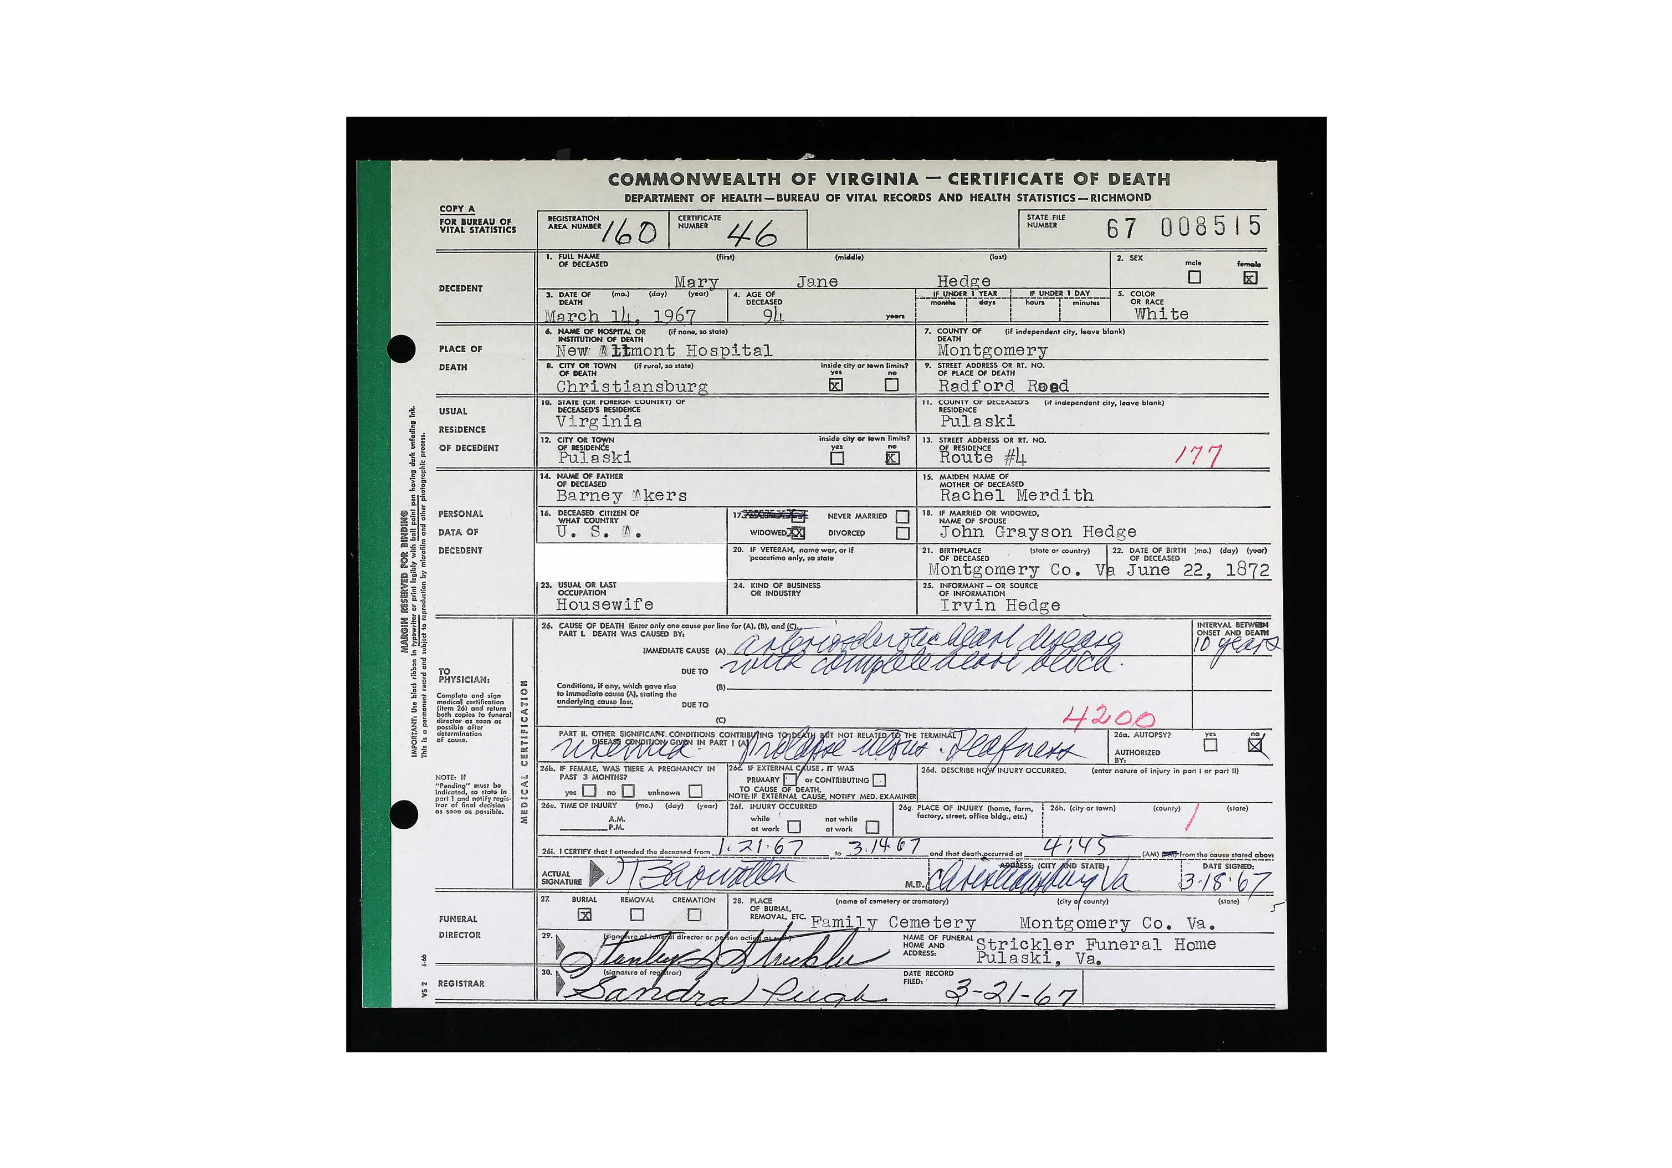 COMMONWEALTH OF VIRGINIA — CERTIFICATE OF DEATH
DEPARTMENT OF HEALTH—BUREAU OF VITAL RECORDS AND HEALTH STATISTICS—RICHMOND
COPY A
FOR BUREAU OF
VITAL STATISTICS
REGISTRATION
AREA NUMBER 160
CERTIFICATE
NUMBER 46
STATE FILE
NUMBER 67 008515
DECEDENT
1. FULL NAME (first) (middle) (last)
OF DECEASED
Mary Jane Hedge
2. SEX male female x
3. DATE OF (mo.) (day) (year)
DEATH
March 14, 1967
4. AGE OF
DECEASED
94 years
IF UNDER 1 YEAR IF UNDER 1 DAY
months days hours minutes
5. COLOR
OR RACE
White
PLACE OF
DEATH
6. NAME OF HOSPITAL OR (if none, so state)
INSTITUTION OF DEATH
New Altmont Hospital
7. COUNTY OF (if independent city, leave blank)
DEATH
Montgomery
8. CITY OR TOWN (if rural, so state) inside city or town limits?
OF DEATH yes no
Christiansburg x
9. STREET ADDRESS OR RT. NO.
OF PLACE OF DEATH
Radford Road
USUAL
RESIDENCE
OF DECEDENT
10. STATE (OR FOREIGN COUNTRY) OF
DECEASED'S RESIDENCE
Virginia
11. COUNTY OF DECEASED'S (if independent city, leave blank)
RESIDENCE
Pulaski
12. CITY OR TOWN inside city or town limits?
OF RESIDENCE yes no
Pulaski x
13. STREET ADDRESS OR RT. NO.
OF RESIDENCE
Route #4 177
PERSONAL
DATA OF
DECEDENT
14. NAME OF FATHER
OF DECEASED
Barney Akers
15. MAIDEN NAME OF
MOTHER OF DECEASED
Rachel Merdith
16. DECEASED CITIZEN OF
WHAT COUNTRY
U. S. A.
17. NEVER MARRIED
WIDOWED X DIVORCED
18. IF MARRIED OR WIDOWED,
NAME OF SPOUSE
John Grayson Hedge
20. IF VETERAN, name war, or if
peacetime only, so state
21. BIRTHPLACE (state or country)
OF DECEASED
Montgomery Co. Va
22. DATE OF BIRTH (mo.) (day) (year)
OF DECEASED
June 22, 1872
23. USUAL OR LAST
OCCUPATION
Housewife
24. KIND OF BUSINESS
OR INDUSTRY
25. INFORMANT — OR SOURCE
OF INFORMATION
Irvin Hedge
MARGIN RESERVED FOR BINDING
IMPORTANT: Use black ribbon in typewriter or print legibly with ball point pen having dark unfading ink.
This is a permanent record and subject to reproduction by microfilm and other photographic process.
TO
PHYSICIAN:
Complete and sign
medical certification
(item 26) and return
both copies to funeral
director as soon as
possible after
determination
of cause.
NOTE: If
"Pending" must be
indicated, so state in
part 1 and notify regis-
trar of final decision
as soon as possible.
MEDICAL CERTIFICATION
26. CAUSE OF DEATH (Enter only one cause per line for (A), (B), and (C).
PART I. DEATH WAS CAUSED BY:
INTERVAL BETWEEN
ONSET AND DEATH
IMMEDIATE CAUSE (A) arteriosclerotic heart disease 10 years
DUE TO with complete heart block.
Conditions, if any, which gave rise
to immediate cause (A), stating the
underlying cause last.
(B)
DUE TO
(C)
4200
PART II. OTHER SIGNIFICANT CONDITIONS CONTRIBUTING TO DEATH BUT NOT RELATED TO THE TERMINAL
DISEASE CONDITION GIVEN IN PART I (A)
uremia. Prolapse uterus. Deafness
26a. AUTOPSY? yes no X
AUTHORIZED
BY:
26b. IF FEMALE, WAS THERE A PREGNANCY IN
PAST 3 MONTHS?
yes no unknown
26c. IF EXTERNAL CAUSE, IT WAS
PRIMARY or CONTRIBUTING
TO CAUSE OF DEATH.
NOTE: IF EXTERNAL CAUSE, NOTIFY MED. EXAMINER
26d. DESCRIBE HOW INJURY OCCURRED. (enter nature of injury in part I or part II)
26e. TIME OF INJURY (mo.) (day) (year)
A.M.
P.M.
26f. INJURY OCCURRED
while not while
at work at work
26g. PLACE OF INJURY (home, farm,
factory, street, office bldg., etc.)
26h. (city or town) (county) (state)
26i. I CERTIFY that I attended the deceased from 1.21.67 to 3.14.67 and that death occurred at 4:45 (AM) from the cause stated above
ACTUAL
SIGNATURE
M.D.
ADDRESS: (CITY AND STATE)
Christiansburg Va
DATE SIGNED:
3.18.67
FUNERAL
DIRECTOR
27. BURIAL REMOVAL CREMATION
x
28. PLACE (name of cemetery or crematory) (city or county) (state)
OF BURIAL,
REMOVAL, ETC. Family Cemetery Montgomery Co. Va.
29. (signature of funeral director or person acting as such)
Stanley S Strickler
NAME OF FUNERAL
HOME AND
ADDRESS:
Strickler Funeral Home
Pulaski, Va.
REGISTRAR
30. (signature of registrar)
Sandra Pugh
DATE RECORD
FILED:
3-21-67
VS 2 1-66